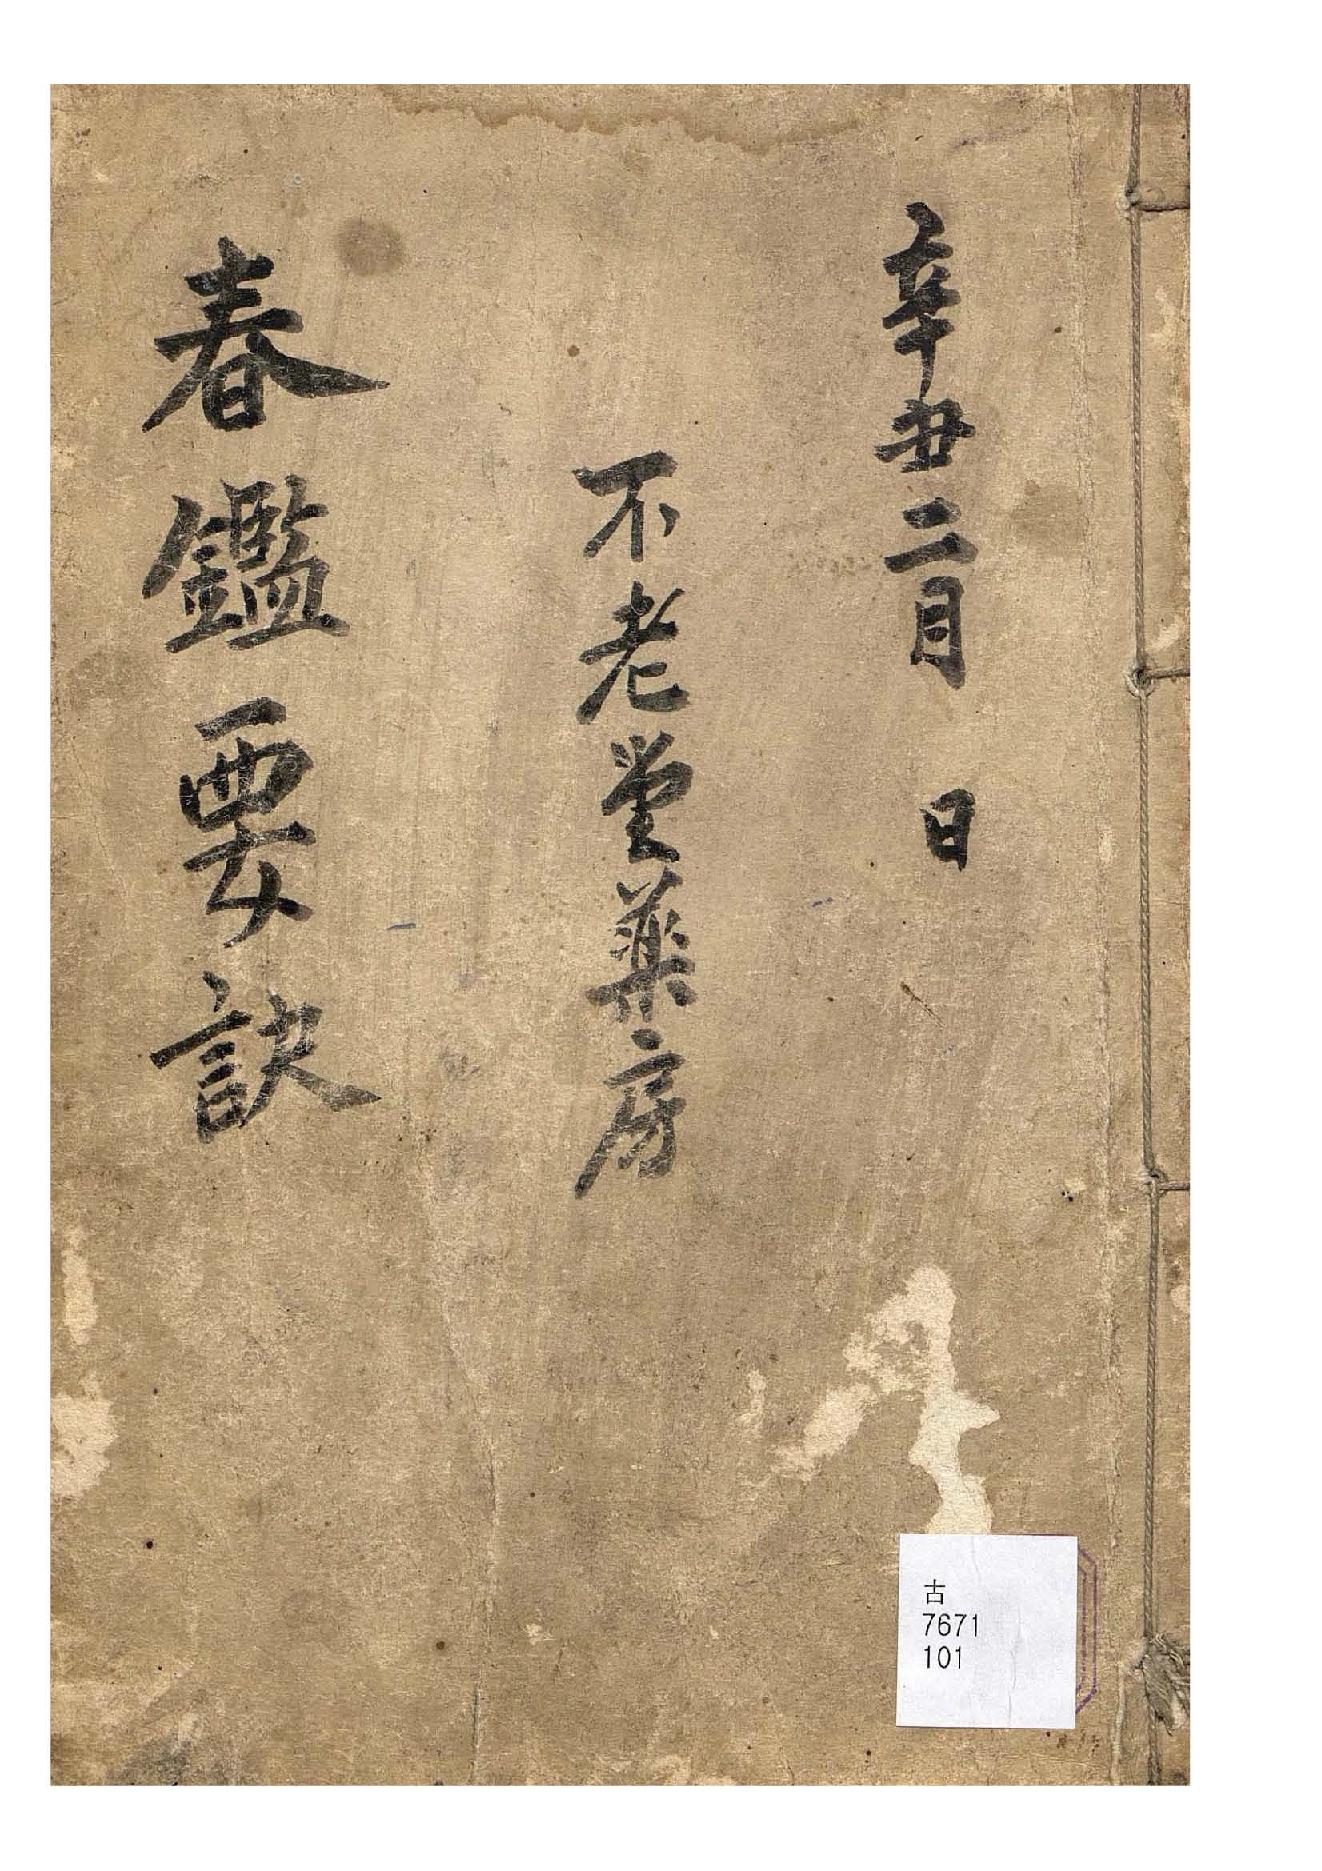 辛丑二月 日
不老堂藥房
春鑑要訣
古
7671
101